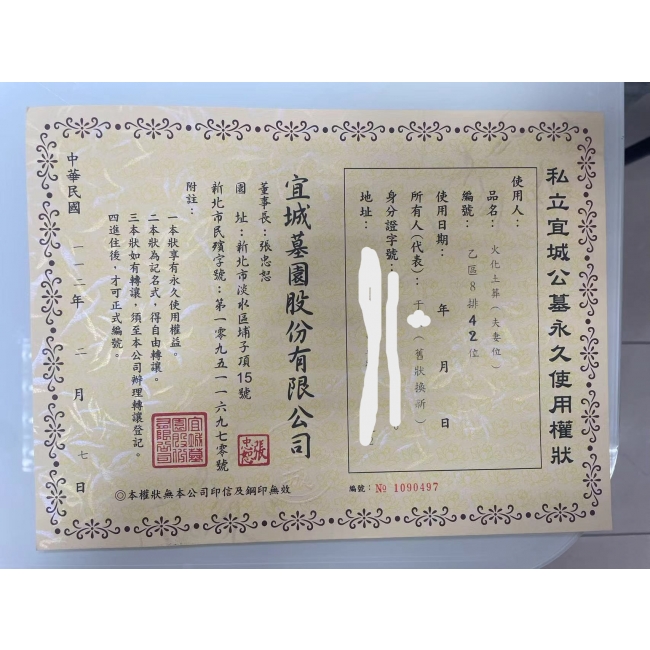 私立宜城公墓永久使用權狀
使用人：
品名：火化土葬（夫妻位）
編號：乙區8排42位
使用日期： 年 月 日
所有人(代表)：于（舊狀換新）
身分證字號：
地址：
編號：№ 1090497
宜城墓園股份有限公司
董事長：張忠恕
園址：新北市淡水區埔子頂15號
新北市民殯字號：第一０九五一一六九七０號
附註：
一本狀享有永久使用權益。
二本狀為記名式，得自由轉讓。
三本狀如有轉讓，須至本公司辦理轉讓登記。
四進住後，才可正式編號。
張忠恕
宜城墓園股份有限公司
◎本權狀無本公司印信及鋼印無效
中華民國 一一二年 二 月 七 日